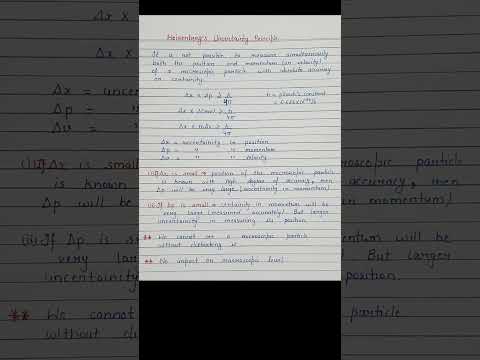 Heisenberg's Uncertainty Principle
It is not possible to measure simultaneously
both the position and momentum (or velocity)
of a microscopic particle with absolute accuracy
or certainty.
Δx × Δp ≥ h/4π    h = planck's constant
Δx × Δ(mv) ≥ h/4π
Δx × mΔv ≥ h/4π
Δx = uncertainty in position
Δp = " " momentum
Δv = " " velocity
(i) If Δx is small → position of the microscopic particle
is known with high degree of accuracy, then
Δp will be very large (uncertainty in momentum)
(ii) If Δp is small → certainty in momentum will be
very large (measured accurately). But larger
uncertainty in measuring its position.
** We cannot see a microscopic particle
without disturbing it.
** No impact on macroscopic level